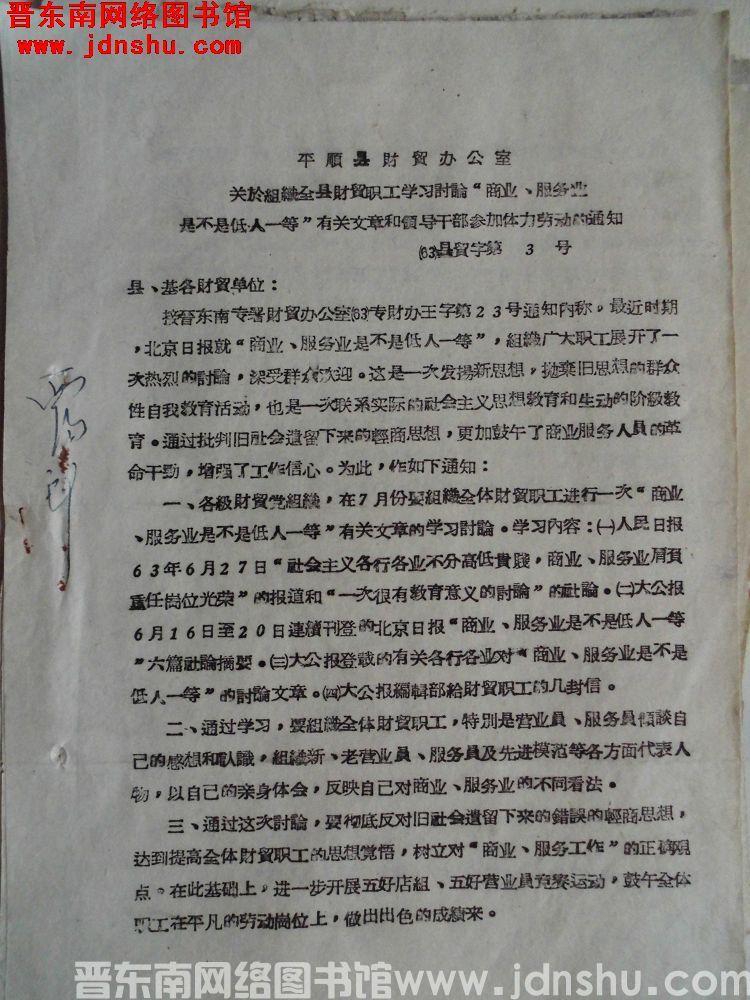 晋东南网络图书馆
www.jdnshu.com
平順县財貿办公室
关於組織全县財貿职工学习討論“商业、服务业
是不是低人一等”有关文章和領导干部参加体力劳动的通知
(63)县貿字第 3 号
县、基各財貿单位：
按晉东南专署財貿办公室(63)专財办王字第23号通知內称。最近时期
，北京日报就“商业、服务业是不是低人一等”，組織广大职工展开了一
次热烈的討論，深受群众欢迎。这是一次发揚新思想，拋棄旧思想的群众
性自我教育活动，也是一次联系实际的社会主义思想教育和生动的阶級教
育。通过批判旧社会遺留下来的輕商思想，更加鼓午了商业服务人員的革
命干勁，增强了工作信心。为此，作如下通知：
一、各級財貿党組織，在7月份要組織全体財貿职工进行一次“商业
、服务业是不是低人一等”有关文章的学习討論。学习內容：㈠人民日报
63年6月27日“社会主义各行各业不分高低貴賎，商业、服务业肩負
重任崗位光荣”的报道和“一次很有教育意义的討論”的社論。㈡大公报
6月16日至20日連續刊登的北京日报“商业、服务业是不是低人一等
”六篇社論摘要。㈢大公报登載的有关各行各业对“商业、服务业是不是
低人一等”的討論文章。㈣大公报編輯部給財貿职工的几封信。
二、通过学习，要組織全体財貿职工，特別是营业員、服务員傾談自
己的感想和认識，組織新、老营业員、服务員及先进模范等各方面代表人
物，以自己的亲身体会，反映自己对商业、服务业的不同看法。
三、通过这次討論，要彻底反对旧社会遺留下来的錯誤的輕商思想，
达到提高全体財貿职工的思想覚悟，树立对“商业、服务工作”的正确覌
点。在此基础上，进一步开展五好店組、五好营业員竞赛运动，鼓午全体
职工在平凡的劳动崗位上，做出出色的成績来。
晋东南网络图书馆www.jdnshu.com